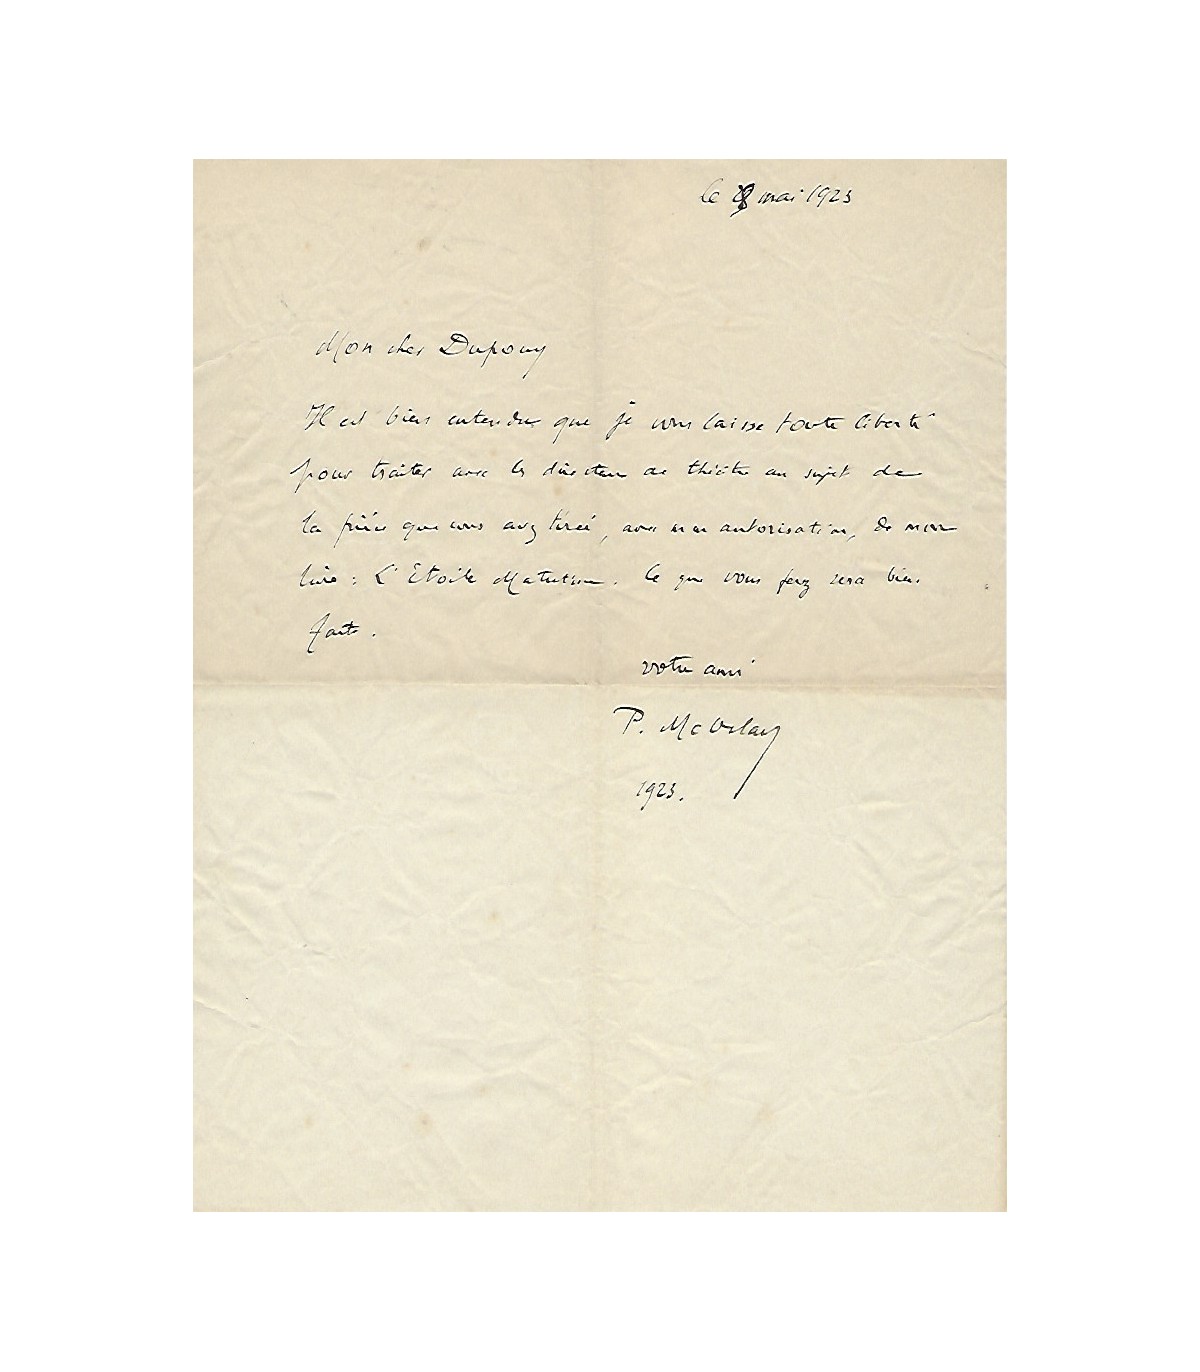 le mai 1923
Mon cher Dupouy
Il est bien entendu que je vous laisse toute liberté
pour traiter avec les directeurs de théâtre au sujet de
la pièce que vous avez tirée, avec mon autorisation, de mon
livre : L'Etoile Matutine. Ce que vous ferez sera bien
fait.
votre ami
P. McOrlan
1923.